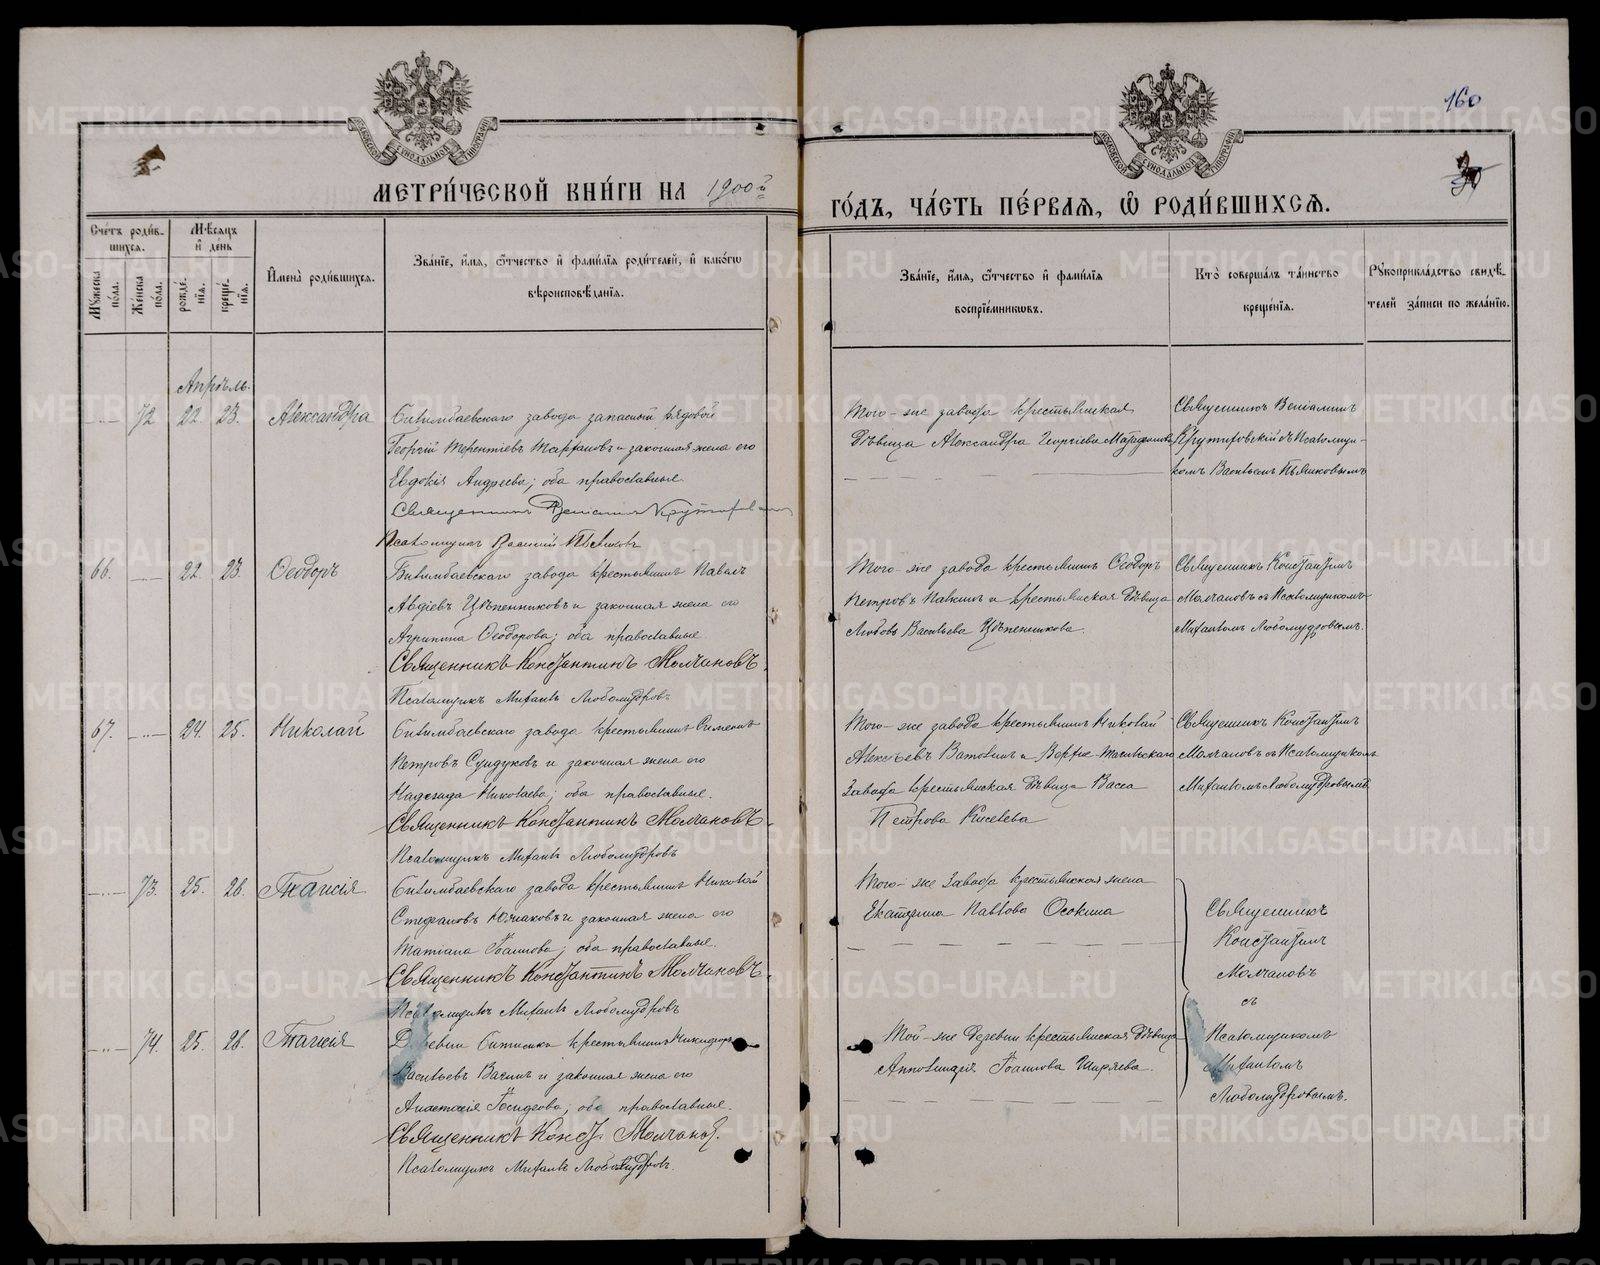 160
МЕТРИ́ЧЕСКОЙ КНИ́ГИ НА 1900й
ГО́ДЪ, ЧА́СТЬ ПЕ́РВАЯ, Ѡ РОДИ́ВШИХСЯ.
Сче́тъ роди́вшихся.
Мꙋжеска по́ла.
Же́нска по́ла.
Мѣ́сяцъ и́ де́нь
рожде́нїя.
креще́нїя.
И́мена̀ роди́вшихся.
Зва́нїе, и́мя, ѻ́тчество и́ фами́лїя роди́телей, и́ како́гѡ
вѣроисповѣ́данїя.
Зва́нїе, и́мя, ѻ́тчество и́ фами́лїя
воспрїе́мникѡвъ.
Кто̀ соверша́лъ та́инство
креще́нїя.
Рꙋкоприкла́дство свидѣ́-
телей за́писи по жела́нїю.
Апрѣль.
72 22. 23. Александра
Билимбаевскаго завода запасный рядовой
Георгій Терентіевъ и законная жена его
Евдокія Андреева; оба православные.
Священникъ Веніаминъ
Псаломщикъ Василій Пьянковъ
Того-же завода крестьянская
дѣвица Александра Георгіева
Священникъ Веніаминъ
съ Псаломщи-
комъ Васильемъ Пьянковымъ
66. 22. 23. Ѳеодоръ
Билимбаевскаго завода крестьянинъ Павелъ
Авдіевъ Цѣпенниковъ и законная жена его
Агрипина Ѳеодорова; оба православные.
Священникъ Константинъ Молчановъ.
Псаломщикъ Михаилъ Любомудровъ
Того-же завода крестьянинъ Ѳеодоръ
Петровъ и крестьянская дѣвица
Любовь Васильева Цѣпенникова.
Священникъ Константинъ
Молчановъ съ Псаломщикомъ
Михаиломъ Любомудровымъ.
67. 24. 25. Николай
Билимбаевскаго завода крестьянинъ Симеонъ
Петровъ Сундуковъ и законная жена его
Надежда Николаева; оба православные.
Священникъ Константинъ Молчановъ.
Псаломщикъ Михаилъ Любомудровъ
Того-же завода крестьянинъ Николай
Алексѣевъ Ватолинъ и
завода крестьянская дѣвица Васса
Петрова Киселева
Священникъ Константинъ
Молчановъ съ Псаломщикомъ
Михаиломъ Любомудровымъ
73. 25. 26. Таисія
Билимбаевскаго завода крестьянинъ Николай
Стефановъ и законная жена его
Татіана Іоаннова; оба православные.
Священникъ Константинъ Молчановъ.
Псаломщикъ Михаилъ Любомудровъ
Того-же завода крестьянская жена
Екатерина Павлова Осокина
Священникъ
Константинъ
Молчановъ
съ
Псаломщикомъ
Михаиломъ
Любомудровымъ.
74. 25. 26. Таисія
Деревни крестьянинъ Никифоръ
Васильевъ и законная жена его
Анастасія; оба православные.
Священникъ Конст. Молчановъ.
Псаломщикъ Михаилъ Любомудровъ.
Той-же деревни крестьянская дѣвица
Аполлинарія Іоаннова Ширяева.
METRIKI.GASO-URAL.RU